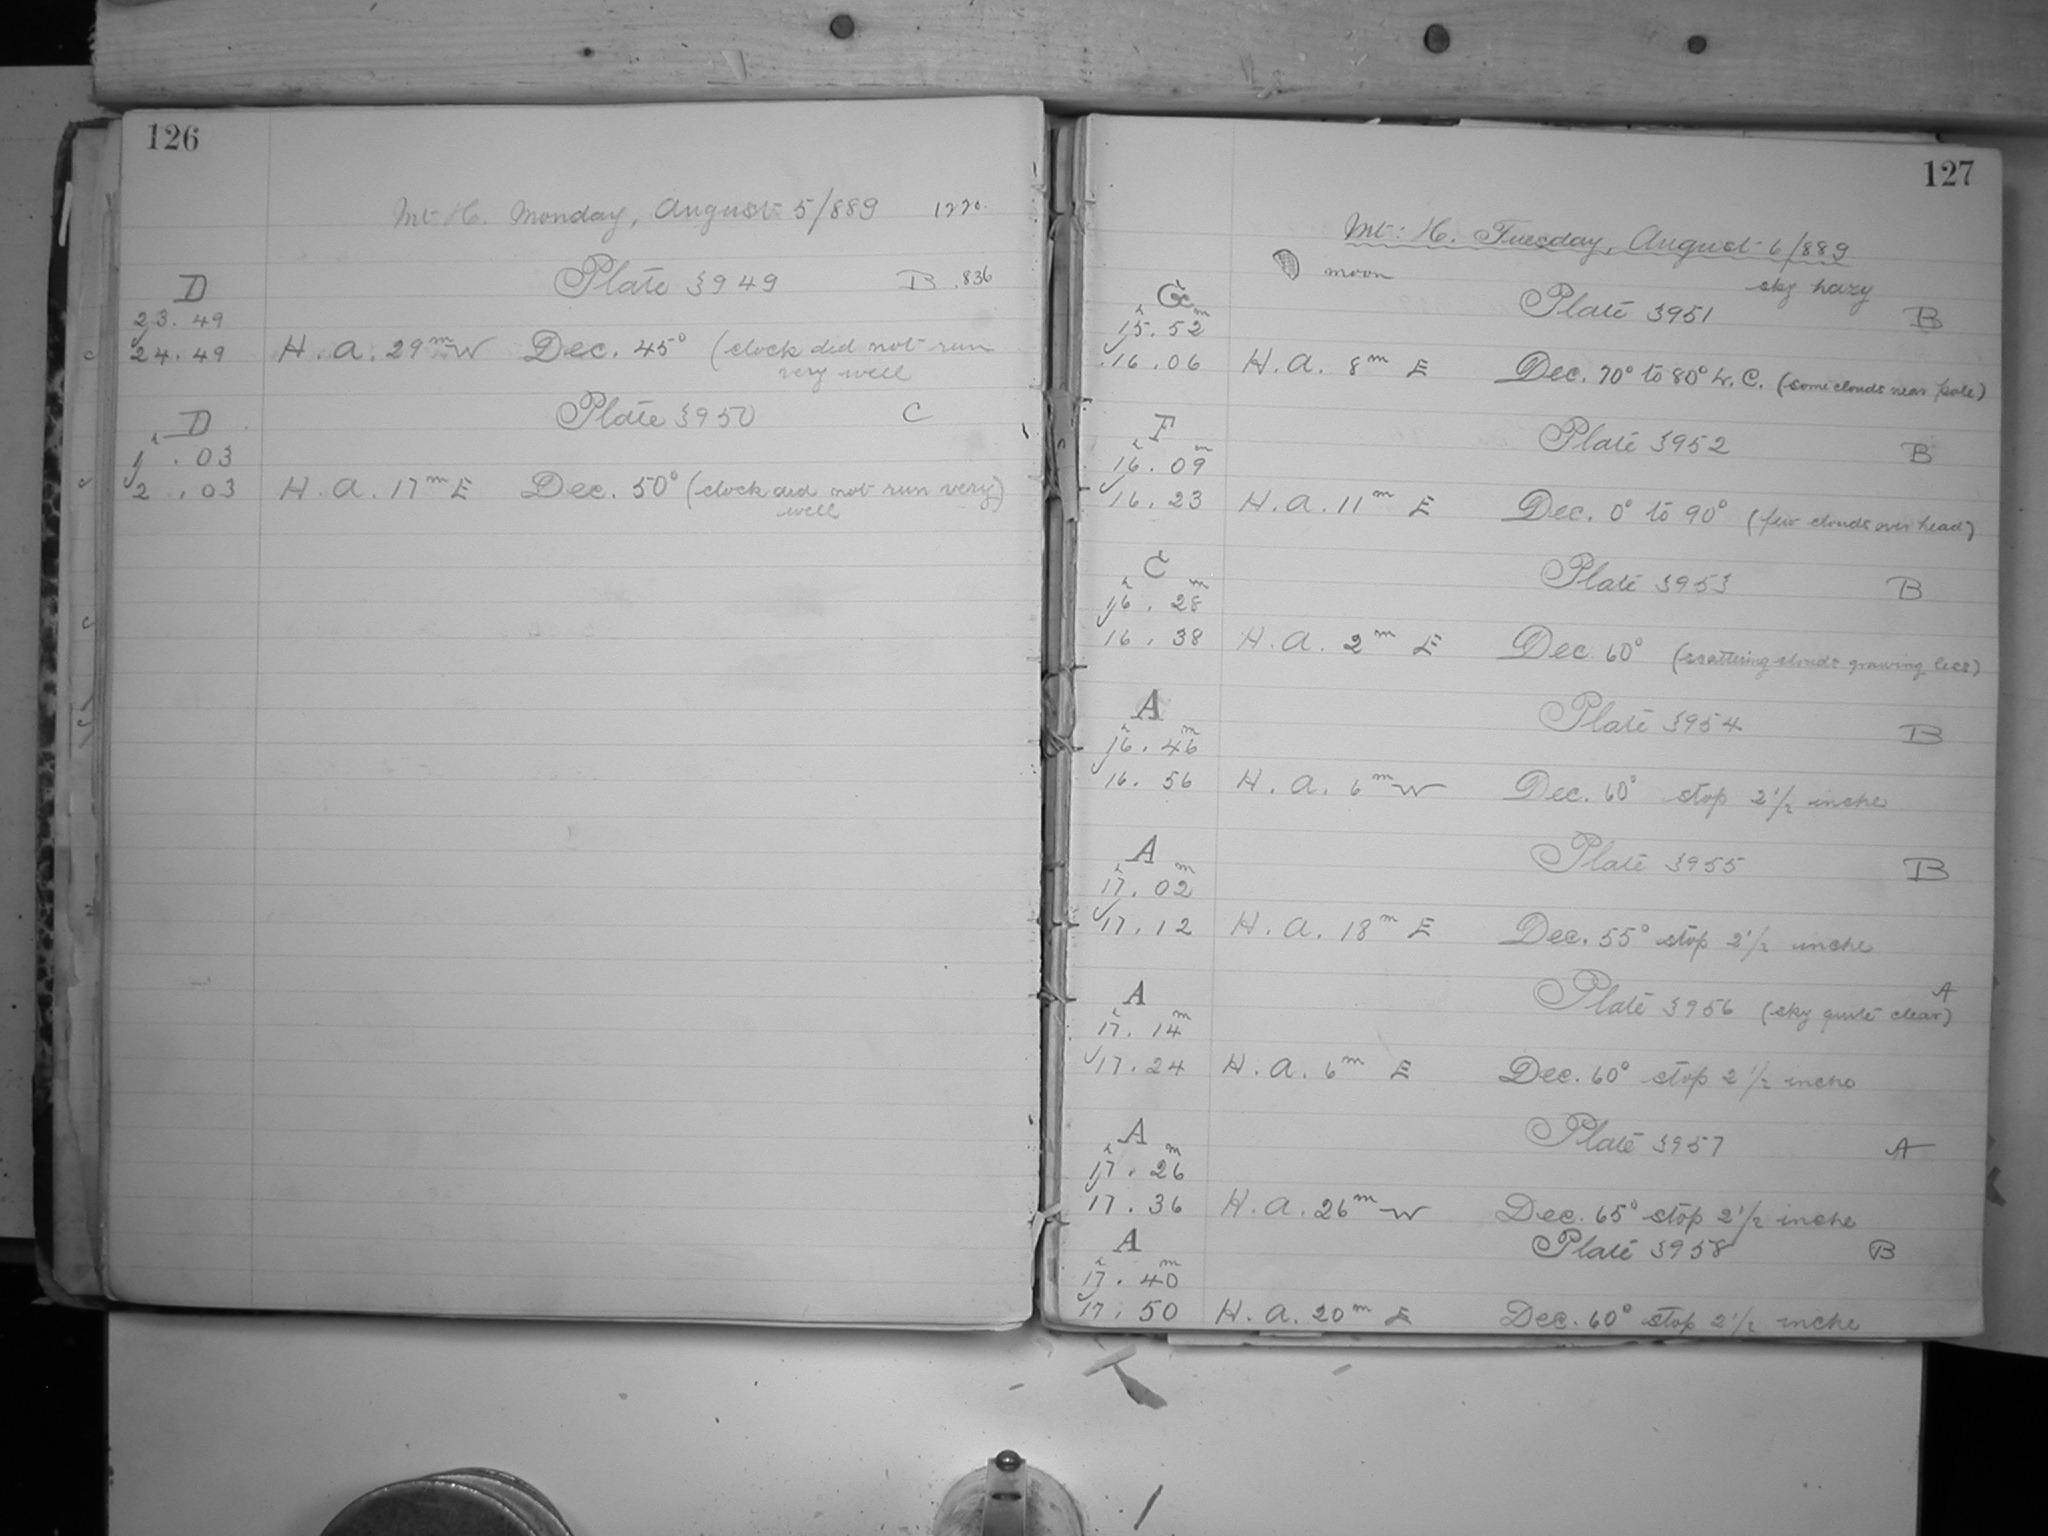 126
Mt. H. Monday, August 5/889 1220.
D Plate 3949 B .836
23.49
24.49 H.A. 29m W Dec. 45° (clock did not run
very well
D Plate 3950 C
h
1.03
2.03 H.A. 17m E Dec. 50° (clock did not run very)
well
127
Mt: H. Tuesday, August 6/889
moon sky hazy
G Plate 3951 B
h m
15.52
16.06 H.A. 8m E Dec. 70° to 80° L.C. (some clouds near pole)
F Plate 3952 B
h m
16.09
16.23 H.A. 11m E Dec. 0° to 90° (few clouds over head)
C Plate 3953 B
h m
16.28
16.38 H.A. 2m E Dec. 60° (scattering clouds growing less)
A Plate 3954 B
h m
16.46
16.56 H.A. 6m W Dec. 60° stop 2 1/2 inche
A Plate 3955 B
h m
17.02
17.12 H.A. 18m E Dec. 55° stop 2 1/2 inche
A Plate 3956 (sky quite clear) A
h m
17.14
17.24 H.A. 6m E Dec. 60° stop 2 1/2 inche
A Plate 3957 A
h m
17.26
17.36 H.A. 26m W Dec. 65° stop 2 1/2 inche
A Plate 3958 B
h m
17.40
17.50 H.A. 20m E Dec. 60° stop 2 1/2 inche